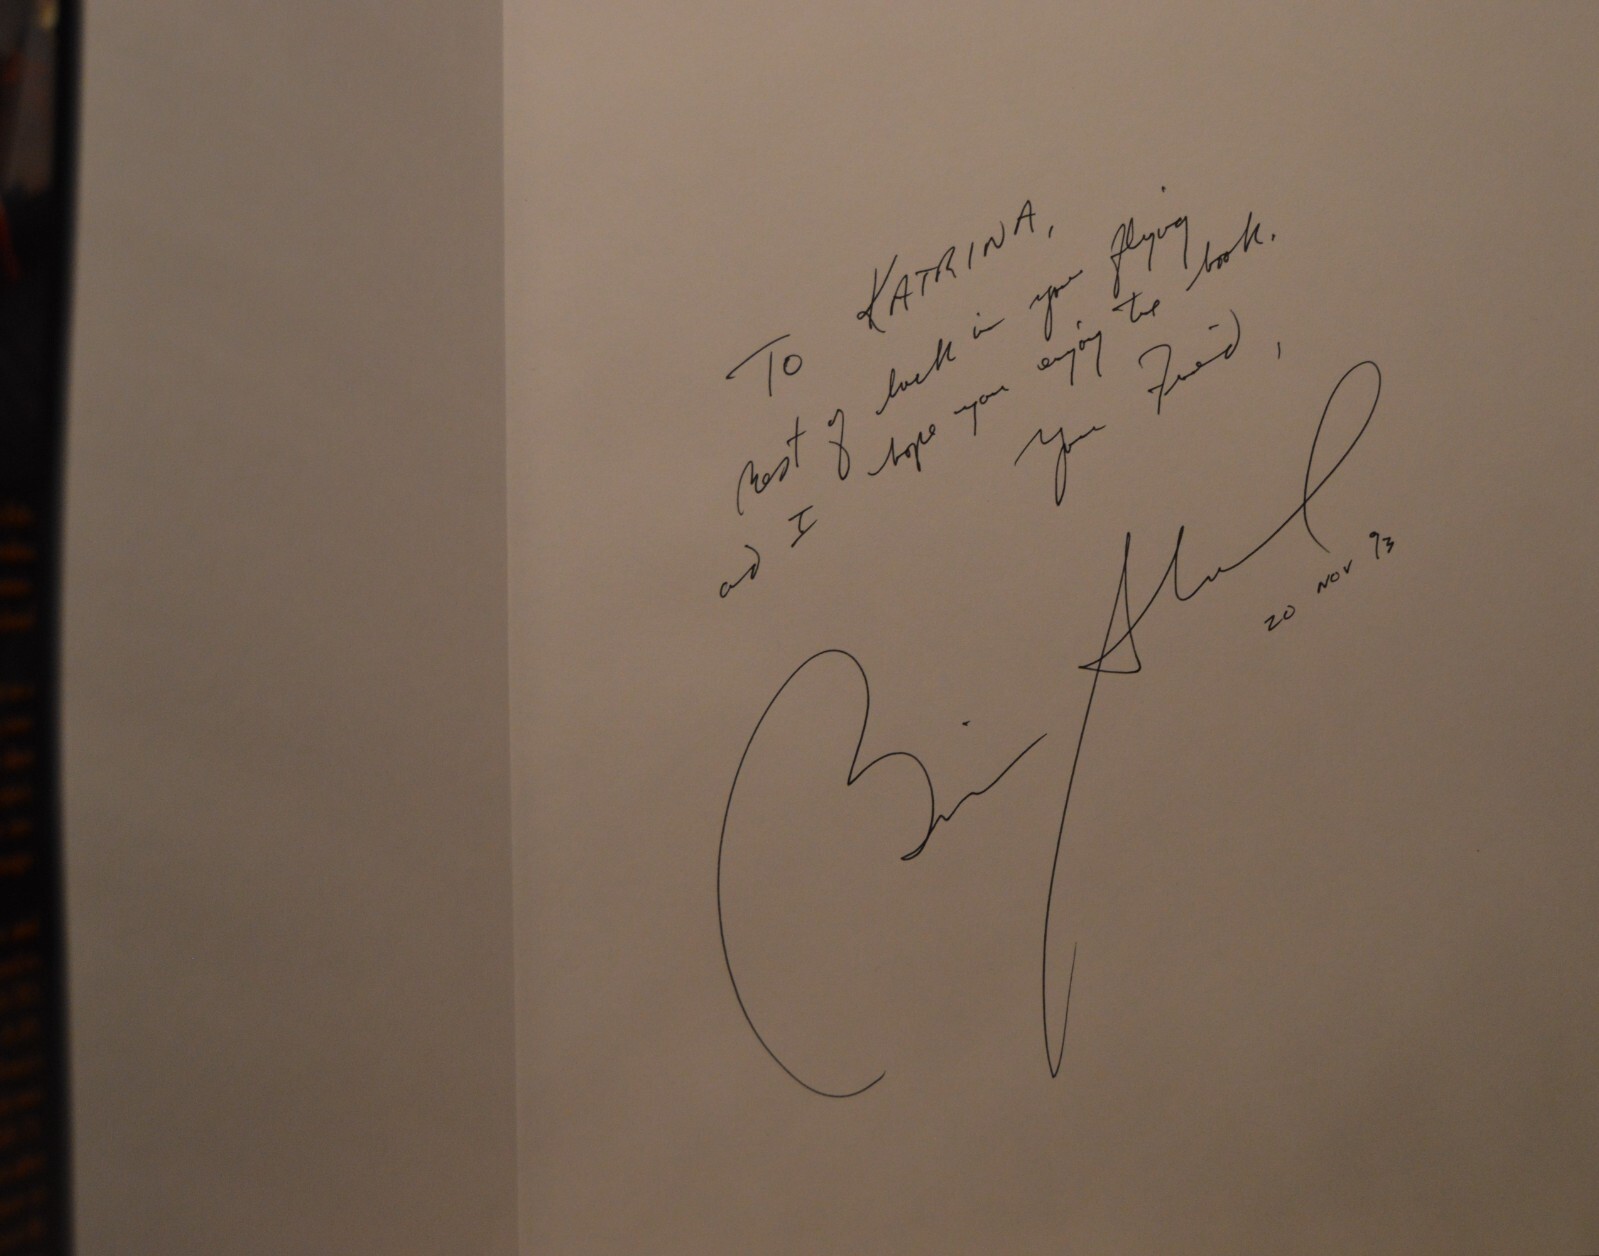 To KATRINA,
Best of luck in your flying
and I hope you enjoy the book.
Your Friend,
Brian
20 NOV 93